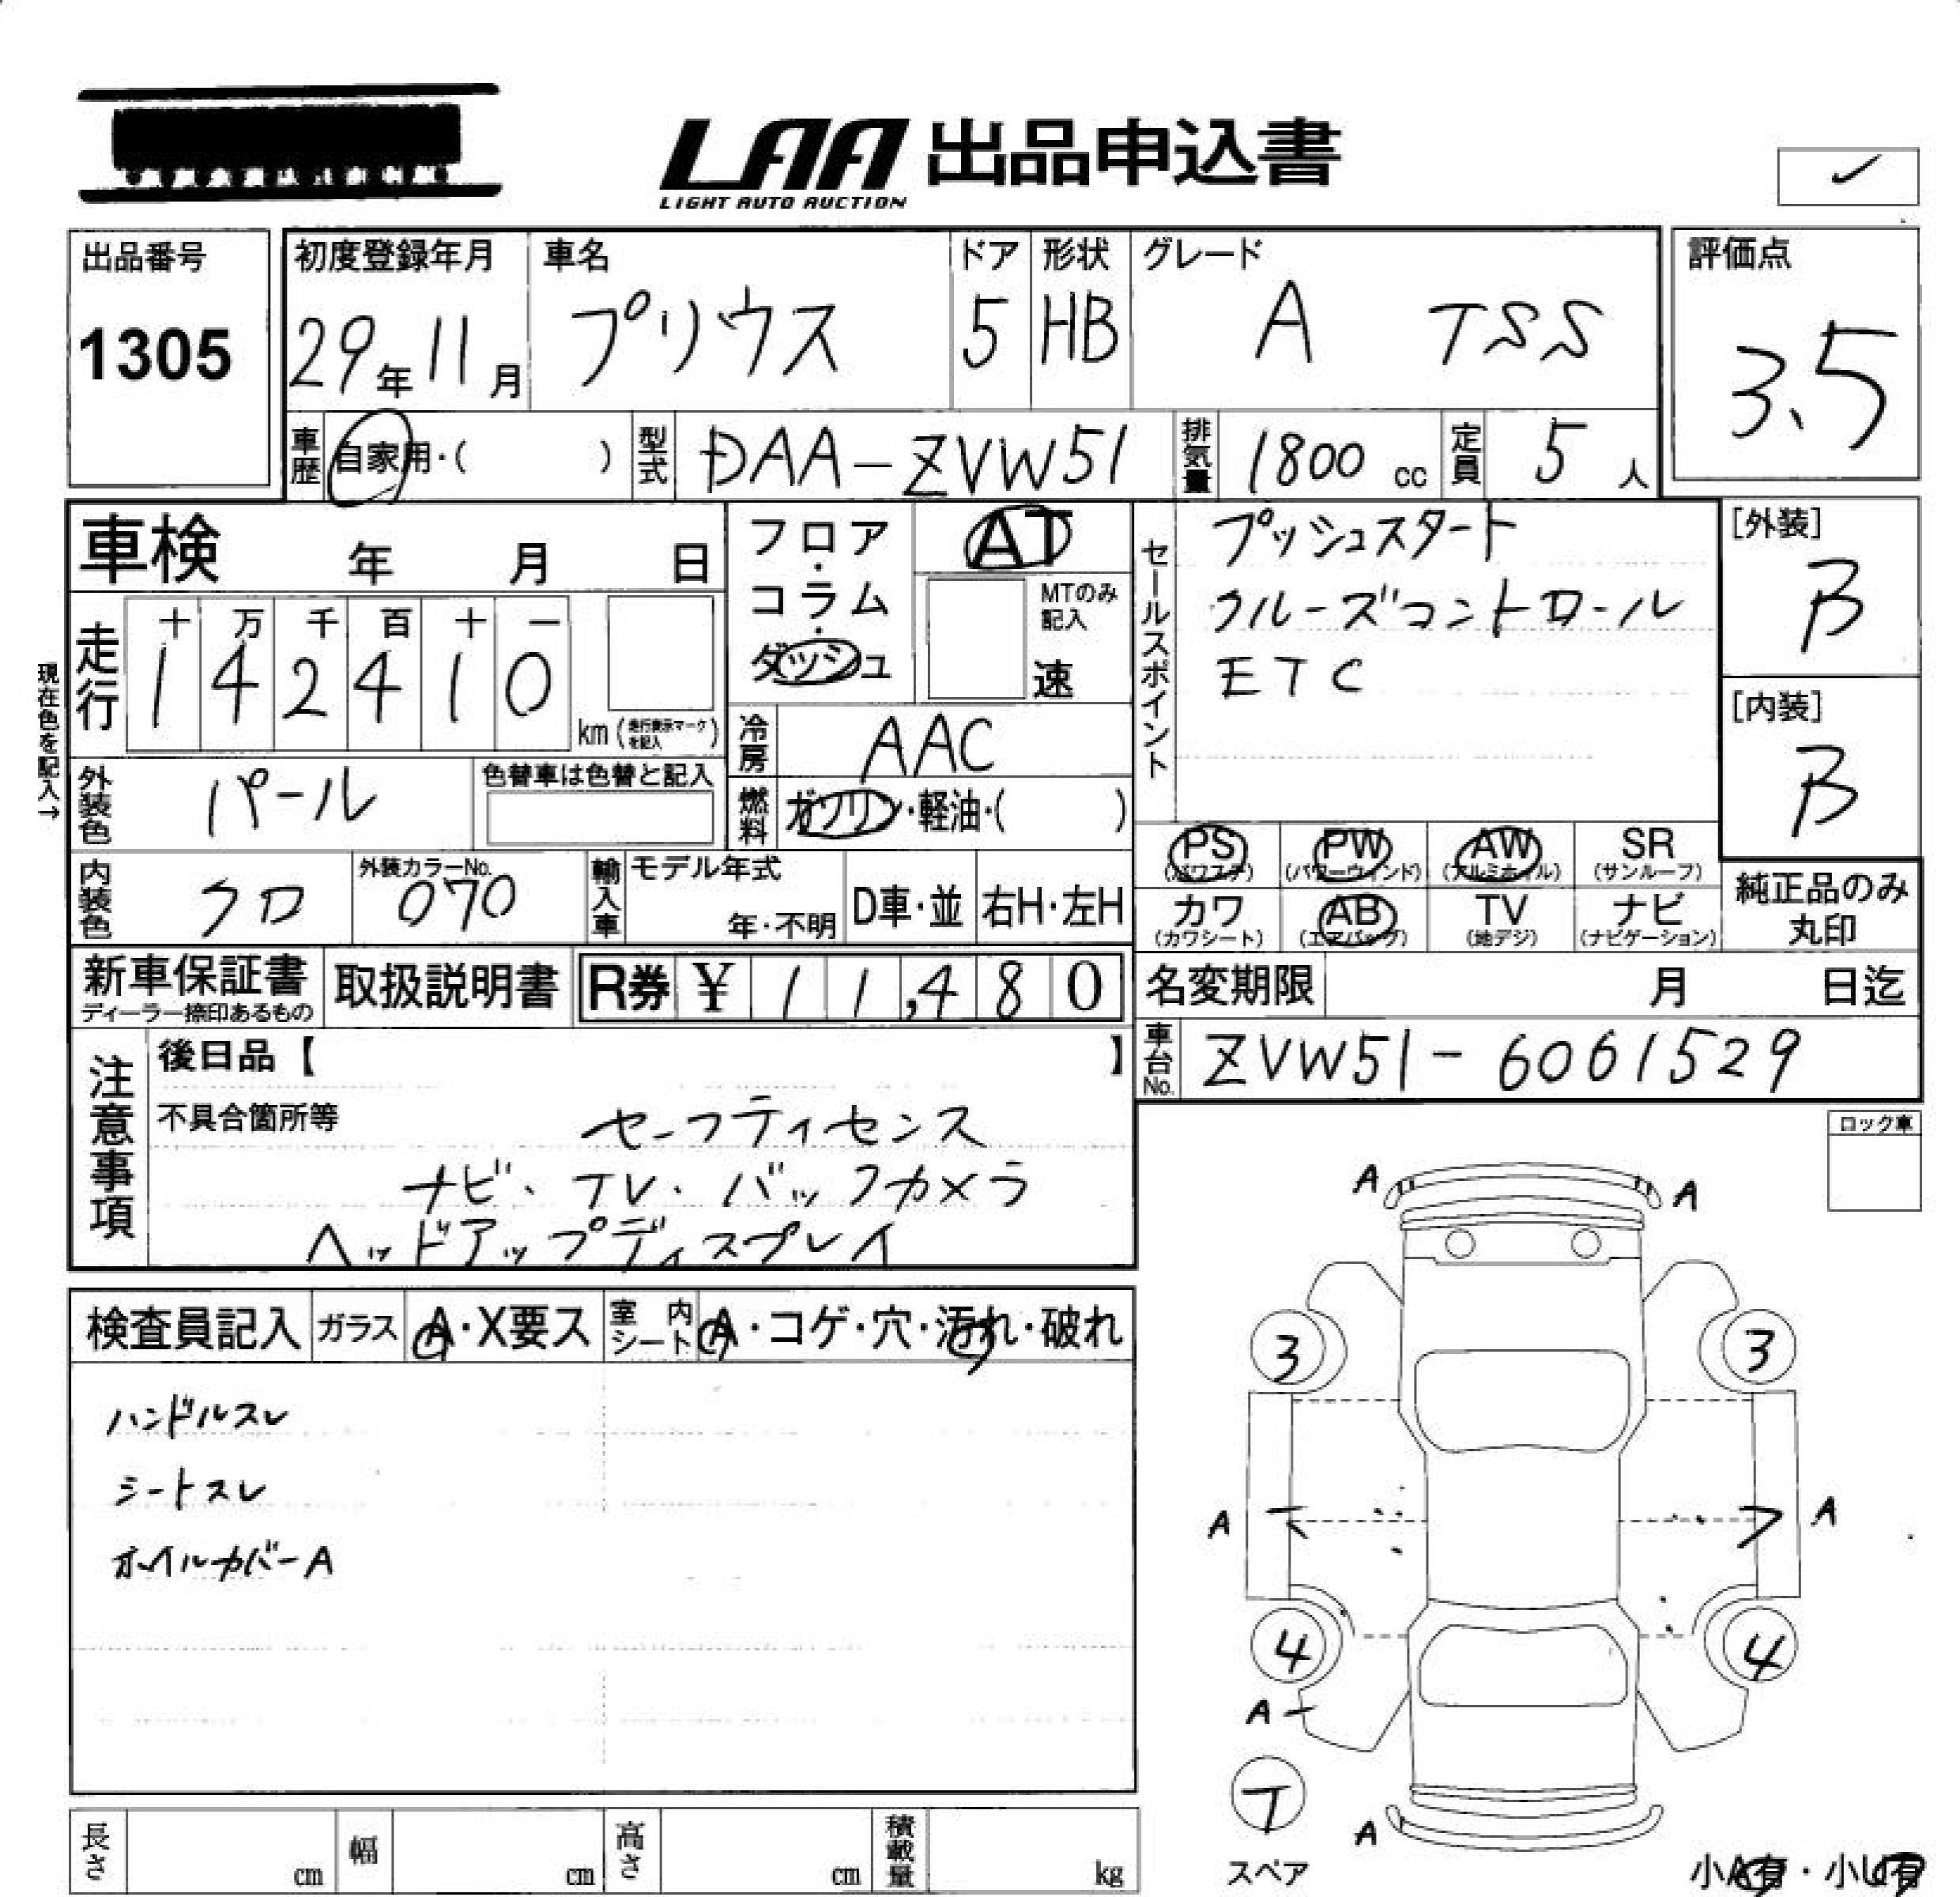 LAA 出品申込書
LIGHT AUTO AUCTION
✓
出品番号
1305
初度登録年月
29年11月
車名
プリウス
ドア
5
形状
HB
グレード
A TSS
評価点
3.5
車歴
自家用・( )
型式
DAA-ZVW51
排気量
1800 cc
定員
5 人
車検 年 月 日
フロア・コラム・ダッシュ
AT
MTのみ記入
速
セールスポイント
プッシュスタート
クルーズコントロール
ETC
[外装]
B
[内装]
B
現在色を記入→
走行
十 万 千 百 十 一
1 4 2 4 1 0
km (走行表示マークを記入)
冷房
AAC
燃料
ガソリン・軽油・( )
外装色
パール
色替車は色替と記入
内装色
クロ
外装カラーNo.
070
輸入車
モデル年式
年・不明
D車・並
右H・左H
PS (パワステ)
PW (パワーウインド)
AW (アルミホイル)
SR (サンルーフ)
カワ (カワシート)
AB (エアバッグ)
TV (地デジ)
ナビ (ナビゲーション)
純正品のみ
丸印
新車保証書
ディーラー捺印あるもの
取扱説明書
R券 ¥ 11,480
名変期限 月 日迄
車台No.
ZVW51-6061529
注意事項
後日品【 】
不具合箇所等
セーフティセンス
ナビ・TV・バックカメラ
ヘッドアップディスプレイ
ロック車
検査員記入
ガラス
A・X要ス
室内シート
A・コゲ・穴・汚れ・破れ
ハンドルスレ
シートスレ
ホイルカバーA
A A
3 3
A A
4 4
A
T
スペア
A
小A有・小U有
長さ cm
幅 cm
高さ cm
積載量 kg